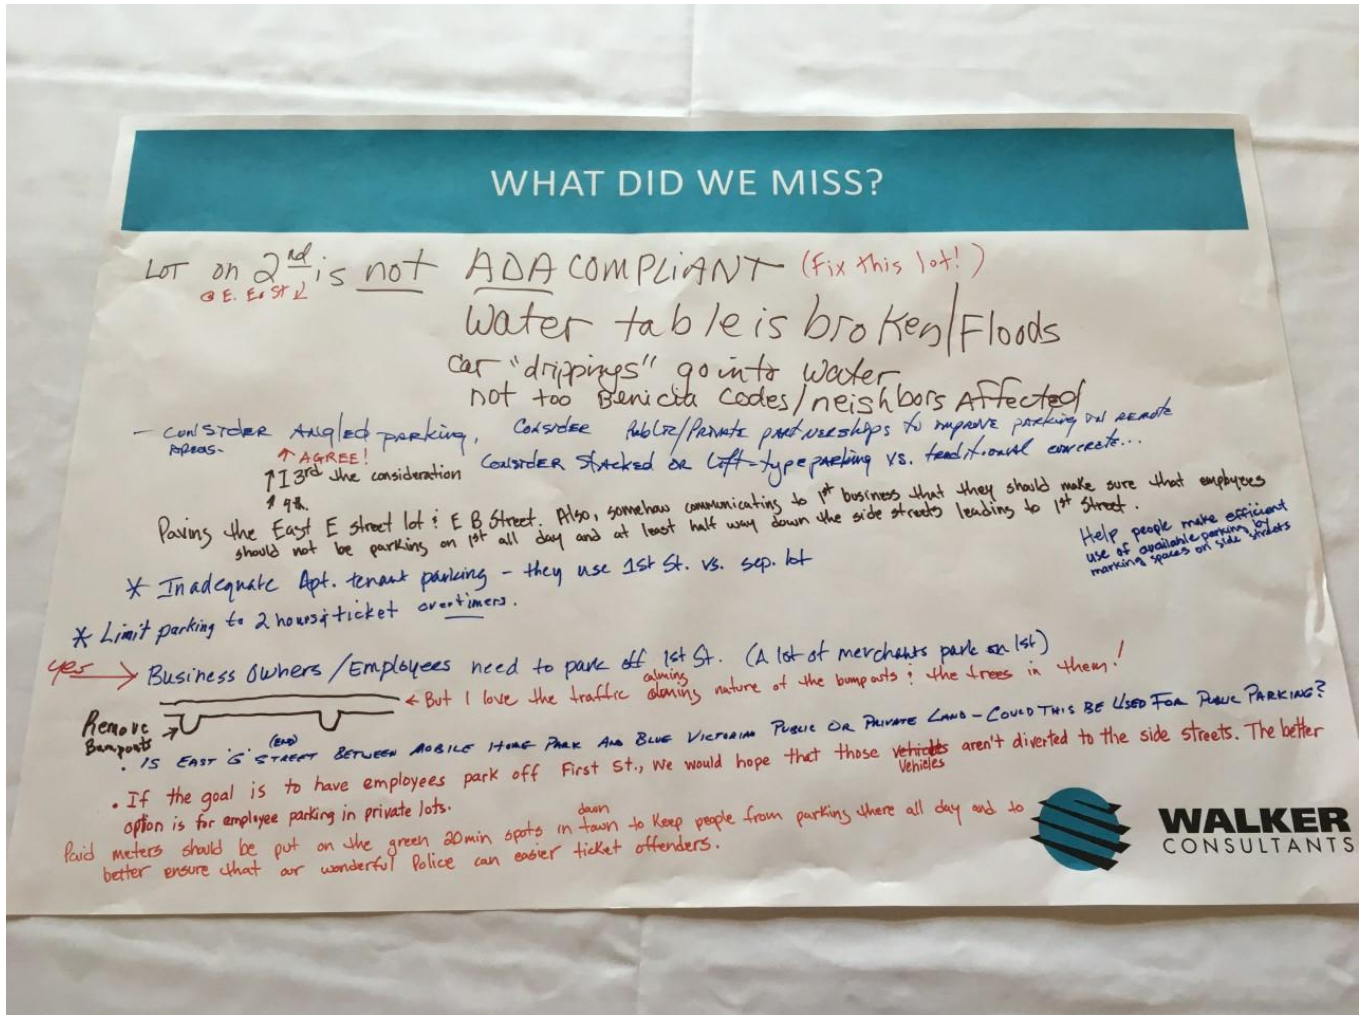 WHAT DID WE MISS?
LOT on 2nd is not ADA COMPLIANT (Fix this lot!)
@ E. E. St
Water table is broken/Floods
car "drippings" go into water
not too Benicia codes/neighbors Affected
- CONSIDER ANGLED PARKING, CONSIDER PUBLIC/PRIVATE PARTNERSHIPS TO IMPROVE PARKING IN REMOTE
AREAS.
↑ AGREE! CONSIDER STACKED OR LIFT-TYPE PARKING VS. TRADITIONAL CONCRETE...
↑ I 3rd the consideration
↑ 4th.
Paving the East E street lot & E B Street. Also, somehow communicating to 1st business that they should make sure that employees
should not be parking on 1st all day and at least half way down the side streets leading to 1st Street.
Help people make efficient
use of available parking by
marking spaces on side streets
* Inadequate Apt. tenant parking - they use 1st St. vs. sep. lot
* Limit parking to 2 hours & ticket overtimers.
yes → Business Owners/Employees need to park off 1st St. (A lot of merchants park on 1st)
← But I love the traffic calming nature of the bumpouts & the trees in them!
Remove
Bumpouts
. IS EAST "G" (END) STREET BETWEEN MOBILE HOME PARK AND BLUE VICTORIAN PUBLIC OR PRIVATE LAND - COULD THIS BE USED FOR PUBLIC PARKING?
. If the goal is to have employees park off First St., we would hope that those vehicles aren't diverted to the side streets. The better
vehicles
option is for employee parking in private lots.
Paid meters should be put on the green 20min spots in down town to keep people from parking there all day and to
better ensure that our wonderful Police can easier ticket offenders.
WALKER
CONSULTANTS